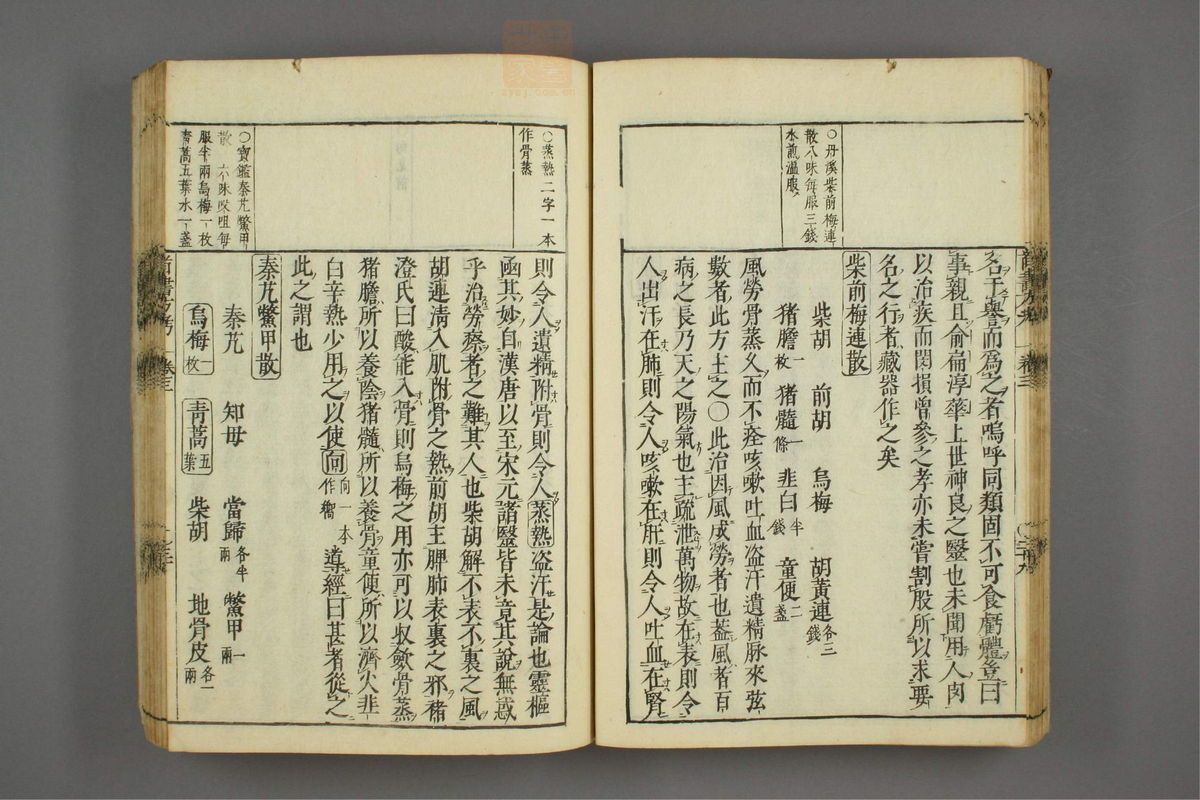 名于譽而爲之者嗚呼同類固不可食虧體豈曰
事親且俞扁淳華上世神良之毉也未聞用人肉
以治疾而閔損曾參之孝亦未嘗割股所以求要
名之行者藏器作之矣
○丹溪柴前梅連
散八味每服三錢
水煎溫服
柴前梅連散
柴胡 前胡 烏梅 胡黃連各三錢
猪膽一枚 猪髓一條 韭白半錢 童便二盞
風勞骨蒸久而不痊咳嗽吐血盗汗遺精脉來弦
數者此方主之○此治因風成勞者也蓋風者百
病之長乃天之陽氣也主疏泄萬物故在表則令
人出汗在肺則令人咳嗽在肝則令人吐血在腎
○蒸熱二字一本
作骨蒸
則令人遺精附骨則令人蒸熱盗汗是論也靈樞
凾其妙自漢唐以至宋元諸毉皆未竟其說無惑
乎治勞瘵者之難其人也柴胡解不表不裏之風
胡連淸入肌附骨之熱前胡主脾肺表裏之邪褚
澄氏曰酸能入骨則烏梅之用亦可以收斂骨蒸
猪膽所以養陰猪髓所以養骨童便所以濟火韭
白辛熱少用之以使向向一本作嚮導經曰甚者從之
此之謂也
○寶鑑秦艽鱉甲
散 六味㕮咀每
服半兩烏梅一枚
靑蒿五葉水一盞
秦艽鱉甲散
秦艽 知母 當歸各半兩 鱉甲一兩
烏梅一枚 靑蒿五葉 柴胡 地骨皮各一兩